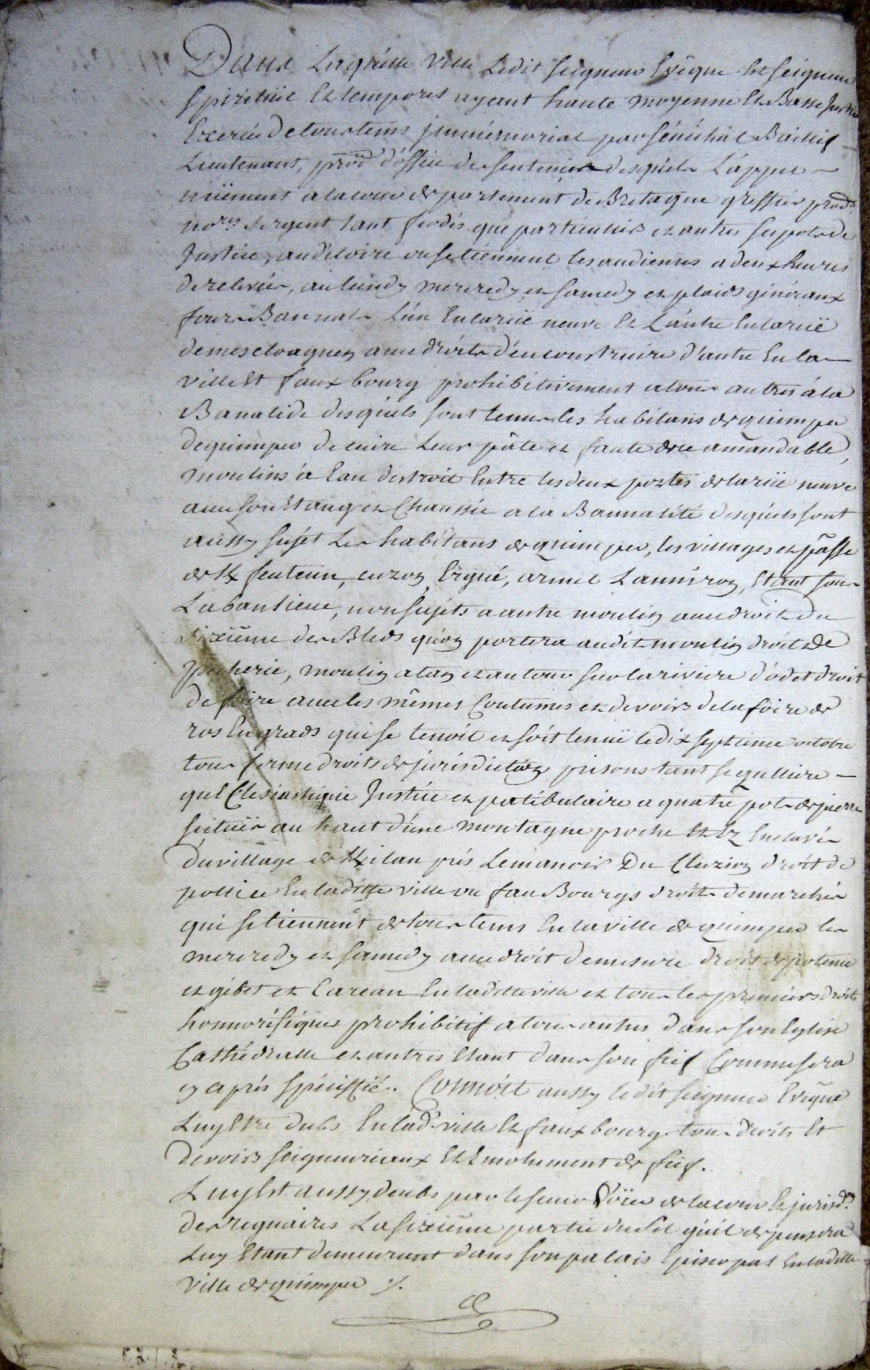 Dans Laquelle ville Ledit seigneur Evêque est seigneur
spirituel Et temporel ayant haute moyenne Et Basse Justice
Exercée De tous tems jmmémorial par sénéchal Baillif
Lieutenant, procr d'office de sentences desquels L'appel
nüement a la cour de parlement de Bretagne greffier procrs
nores sergent tant féodés que particuliers et autre supots de
Justice, auditoire ou se tiennent les audiences a deux heures
de relevée, au lundy mercredy et samedy et plaids généraux
fours Bannale L'un En la rüe neuve Et L'autre En la rüe
de mescloaguen avec droits d'en construire d'autre En la
ville Et faux bourg prohibitivement a tous autres à la
Banalide desquels sont tenus les habitans de quimper
de quimper de cuire Leur pâte et faute de ce amandable,
moulins à Eau destroit Entre les deux portes de la rüe neuve
avec son Etang et Chaussée a la Bannalité desquels sont
aussy sujet Les habitans de quimper, les villages et pâsse
de K feuteun, cuzon, Ergué, armel Lanniron, Etant sous
La banlieue, non sujets a autre moulin avec droit du
sixiême des Bleds qu'on portera audit moulin droit de
pecherie, moulin a tan et autour sur la riviere d'odet droit
de foire avec les mêmes Coutumes et devoirs de la foire de
ros En grads qui se tenoit et soit tenüe le dix septieme octobre
tous ferme droits de jurisdiction prisons tant seculliere
qu'Eclésiastique Justice et patibulaire a quatre pots de pierre
sictüée au haut d'une montagne proche Et Ez Enclavés
du village de Kilan prés Le manoir Du Cluziou droit de
pollice En laditte ville ou faux Bourgs droits de marchés
qui se tiennent de tous tems En la ville de quimper les
mercredy et samedy avec droit de mesure droit de potence
et gibet et Carcan En ladite ville et tous les premiers droits
honnorifiques prohibitif a tous autres dans son Eglise
Cathédralle et autres Etant dans son fief Comme sera
cy aprés spécifié. Connoît aussy ledit seigneur Evêque
Luy Etre dubs En lad. ville Et faux bourg tous droits Et
devoirs seigneuriaux Et Emolument de fief.
Luy Est aussy deubs par le sieur Voïer de la cour Et jurisdon
des reguaires La sixiême partie du sel qu'il depensera
Luy Etant demeurant dans son palais Episcopal En ladite
ville de quimper ./.